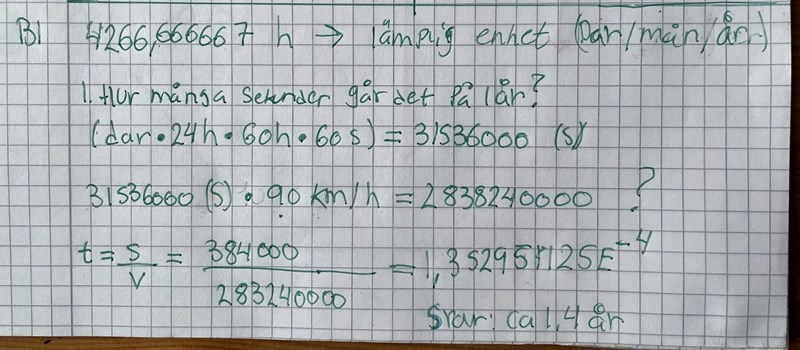 B1 4266,666667 h → lämplig enhet (Dar/mån/årr)
1. Hur många sekunder går det på 1 år?
(dar • 24h • 60h • 60s) = 31536000 (s)
31536000 (s) • 90 km/h = 2838240000 ?
t = s/v = 384000/283240000 = 1,352951125E⁻⁴
Svar: ca 1,4 år